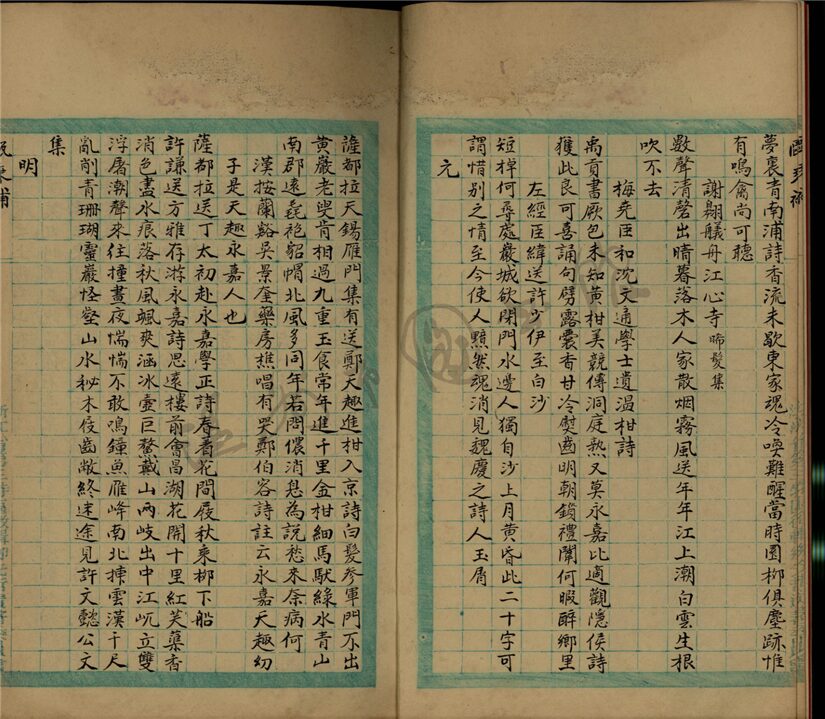 夢裏青南浦詩香流未歇東家魂冷喚難醒當時園柳俱塵跡惟
有鳴禽尚可聽
謝翶艤舟江心寺晞髮集
數聲清磬出晴暮落木人家散烟霧風送年年江上潮白雲生根
吹不去
梅堯臣和沈文通學士遺温柑詩
禹貢書厥包未知黄柑美競傳洞庭熟又莫永嘉比適觀隱侯詩
獲此良可喜誦句劈露囊香甘冷熨齒明朝鎖禮闈何暇醉鄉里
左經臣緯送許少伊至白沙
短棹何尋處嚴城欲閉門水邊人獨自沙上月黄昏此二十字可
謂惜别之情至今使人黯然魂消見魏慶之詩人玉屑
元
薩都拉天錫雁門集有送鄭天趣進柑入京詩白髮參軍門不出
黄嚴老叟肯相過九重玉食常年進千里金柑細馬馱綠水青山
南郡遠毳袍貂帽北風多同年若問儂消息為說愁來奈病何
漢按蘭谿吳景奎藥房樵唱有哭鄭伯容詩註云永嘉天趣幼
子是天趣永嘉人也
薩都拉送丁太初赴永嘉學正詩春看花間履秋乘柳下船
許謙送方雅存游永嘉詩思遠樓前會昌湖花開十里紅芙蕖香
消色盡水痕落秋風颯爽涵冰壺巨鰲戴山兩岐出中江屼立雙
浮屠潮聲來往撞晝夜惴惴不敢鳴鐘魚雁峰南北揀雲漢千尺
亂削青珊瑚靈巖怪壑山水秘木伎齒敝終迷途見許文懿公文
集
明